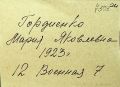 Гордиенко
Мария Яковлевна
1923г
12 Военная 7